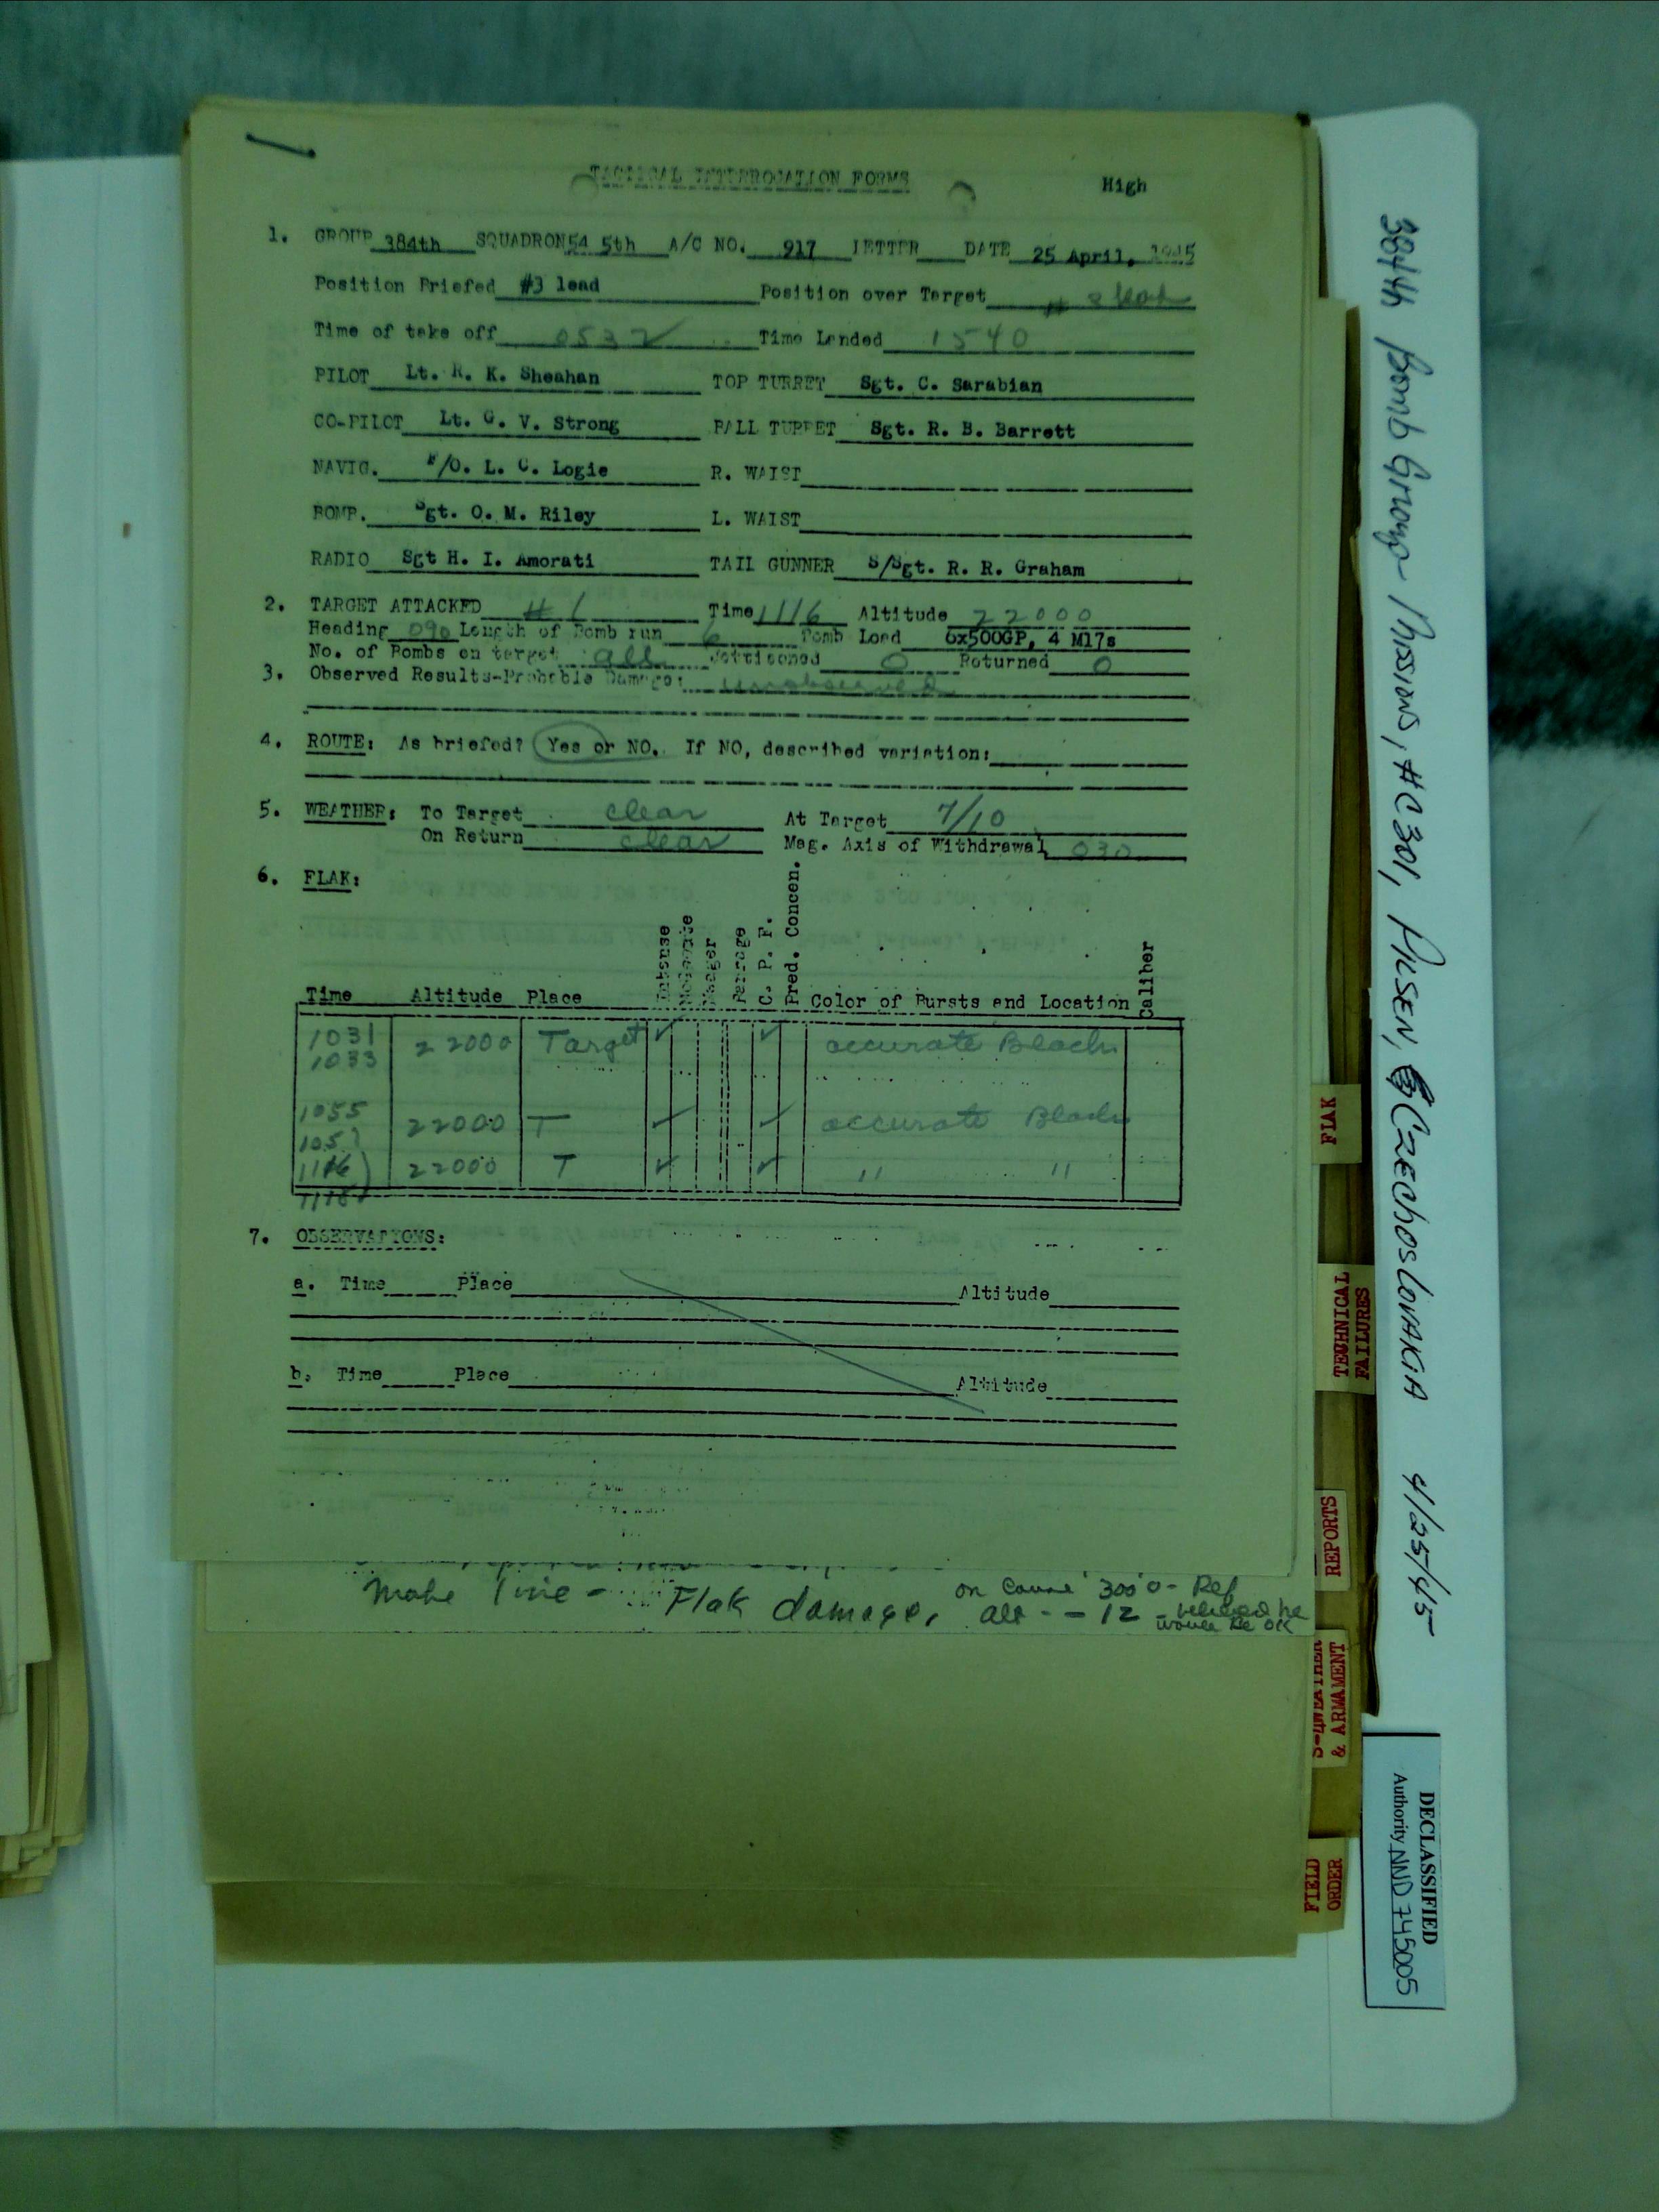 TACTICAL INTERROGATION FORMS High
1. GROUP 384th SQUADRON 54 5th A/C NO. 917 LETTER DATE 25 April, 1945
Position Briefed #3 lead Position over Target #
Time of take off 0532 Time Landed 1540
PILOT Lt. R. K. Sheahan TOP TURRET Sgt. C. Sarabian
CO-PILOT Lt. G. V. Strong BALL TURRET Sgt. R. B. Barrett
NAVIG. F/O. L. C. Logie R. WAIST
BOMB. Sgt. O. M. Riley L. WAIST
RADIO Sgt H. I. Amorati TAIL GUNNER S/Sgt. R. R. Graham
2. TARGET ATTACKED #1 Time 1116 Altitude 22000
Heading 090 Length of Bomb run 6 Bomb Load 6x500GP, 4 M17s
No. of Bombs on target all Jettisoned 0 Returned 0
3. Observed Results-Probable Damage: unobserved
4. ROUTE: As briefed? Yes or NO. If NO, described variation:
5. WEATHER: To Target clear At Target 7/10
On Return clear Mag. Axis of Withdrawal 030
6. FLAK:
Time Altitude Place Intense Moderate Meager Barrage C. P. F. Pred. Concen. Color of Bursts and Location Caliber
1031 22000 Target ✓ ✓ accurate Black
1033
1055 22000 T ✓ ✓ accurate Black
105
1116 22000 T ✓ ✓ " "
1118
7. OBSERVATIONS:
a. Time Place Altitude
b. Time Place Altitude
Make line - Flak damage, on course 3000 - Ref
alt - - 12 - believed he
would be OK
FLAK
TECHNICAL
FAILURES
REPORTS
S-4WEATHER
& ARMAMENT
FIELD
ORDER
384th Bomb Group Missions, #C301, PILSEN, CZECHOSLOVAKIA 4/25/45
DECLASSIFIED
Authority NND 745005